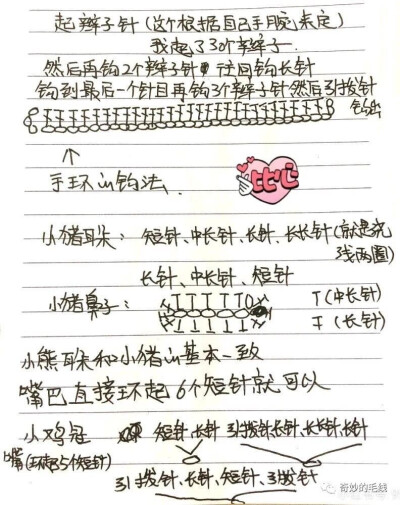 起辫子针(这个根据自己手腕来定)
我起了30个辫子.
然后再钩2个辫子针 往回钩长针
钩到最后一个针目再钩3个辫子针然后引拔针
钩出
手环的钩法.
比心
小猪耳朵: 短针、中长针、长针、长长针(就是绕
线两圈)
长针、中长针、短针
小猪鼻子:
T(中长针)
(长针)
小熊耳朵和小猪的基本一致
嘴巴直接环起6个短针就可以
小鸡冠 短针、长针 引拔针、长针、长长针、长针
嘴(环起5个短针)
引拔针、长针、短针、引拔针
奇妙的毛线